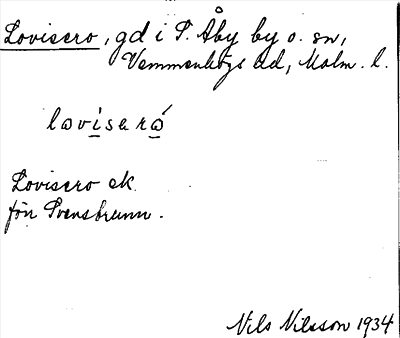 Lovisero, gd i S. Åby by o. sn,
Vemmenhögs hd, Malm. l.
lovisəró
Lovisero ek.
förr Svensbrunn.
Nils Nilsson 1934